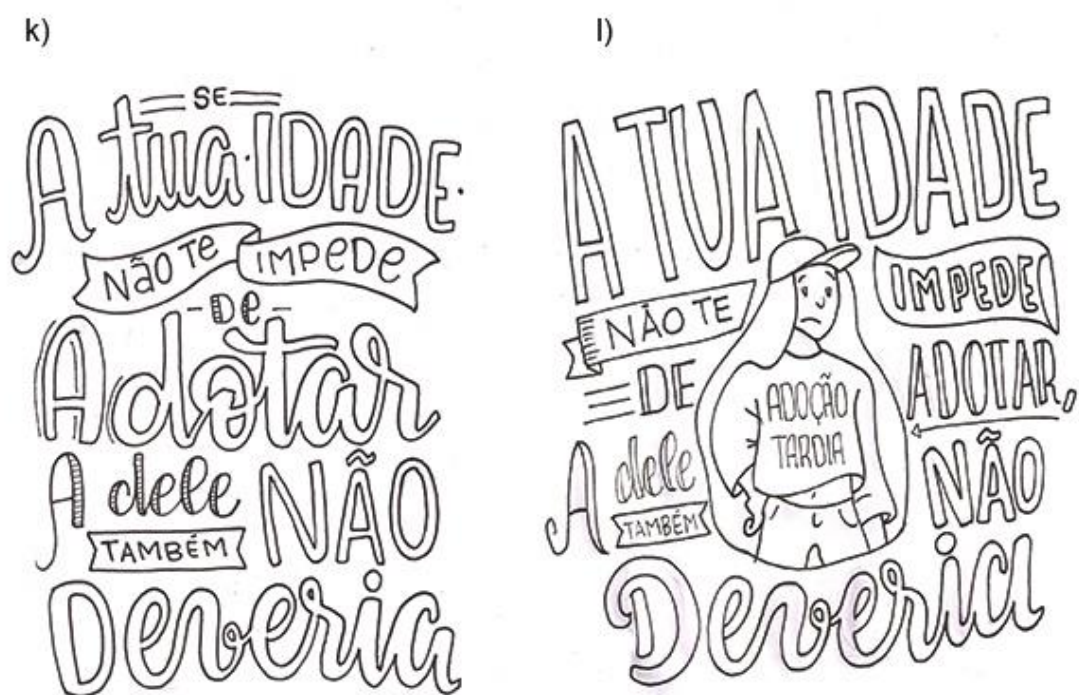 k)
SE
A tua IDADE
Não Te IMPeDe
- De -
Adotar
A dele NÃO
TAMBÉM
Deveria
l)
A TUA IDADE
NÃO TE IMPEDE
DE ADOTAR,
ADOÇÃO
TARDIA
A dele NÃO
TAMBÉM
Deveria